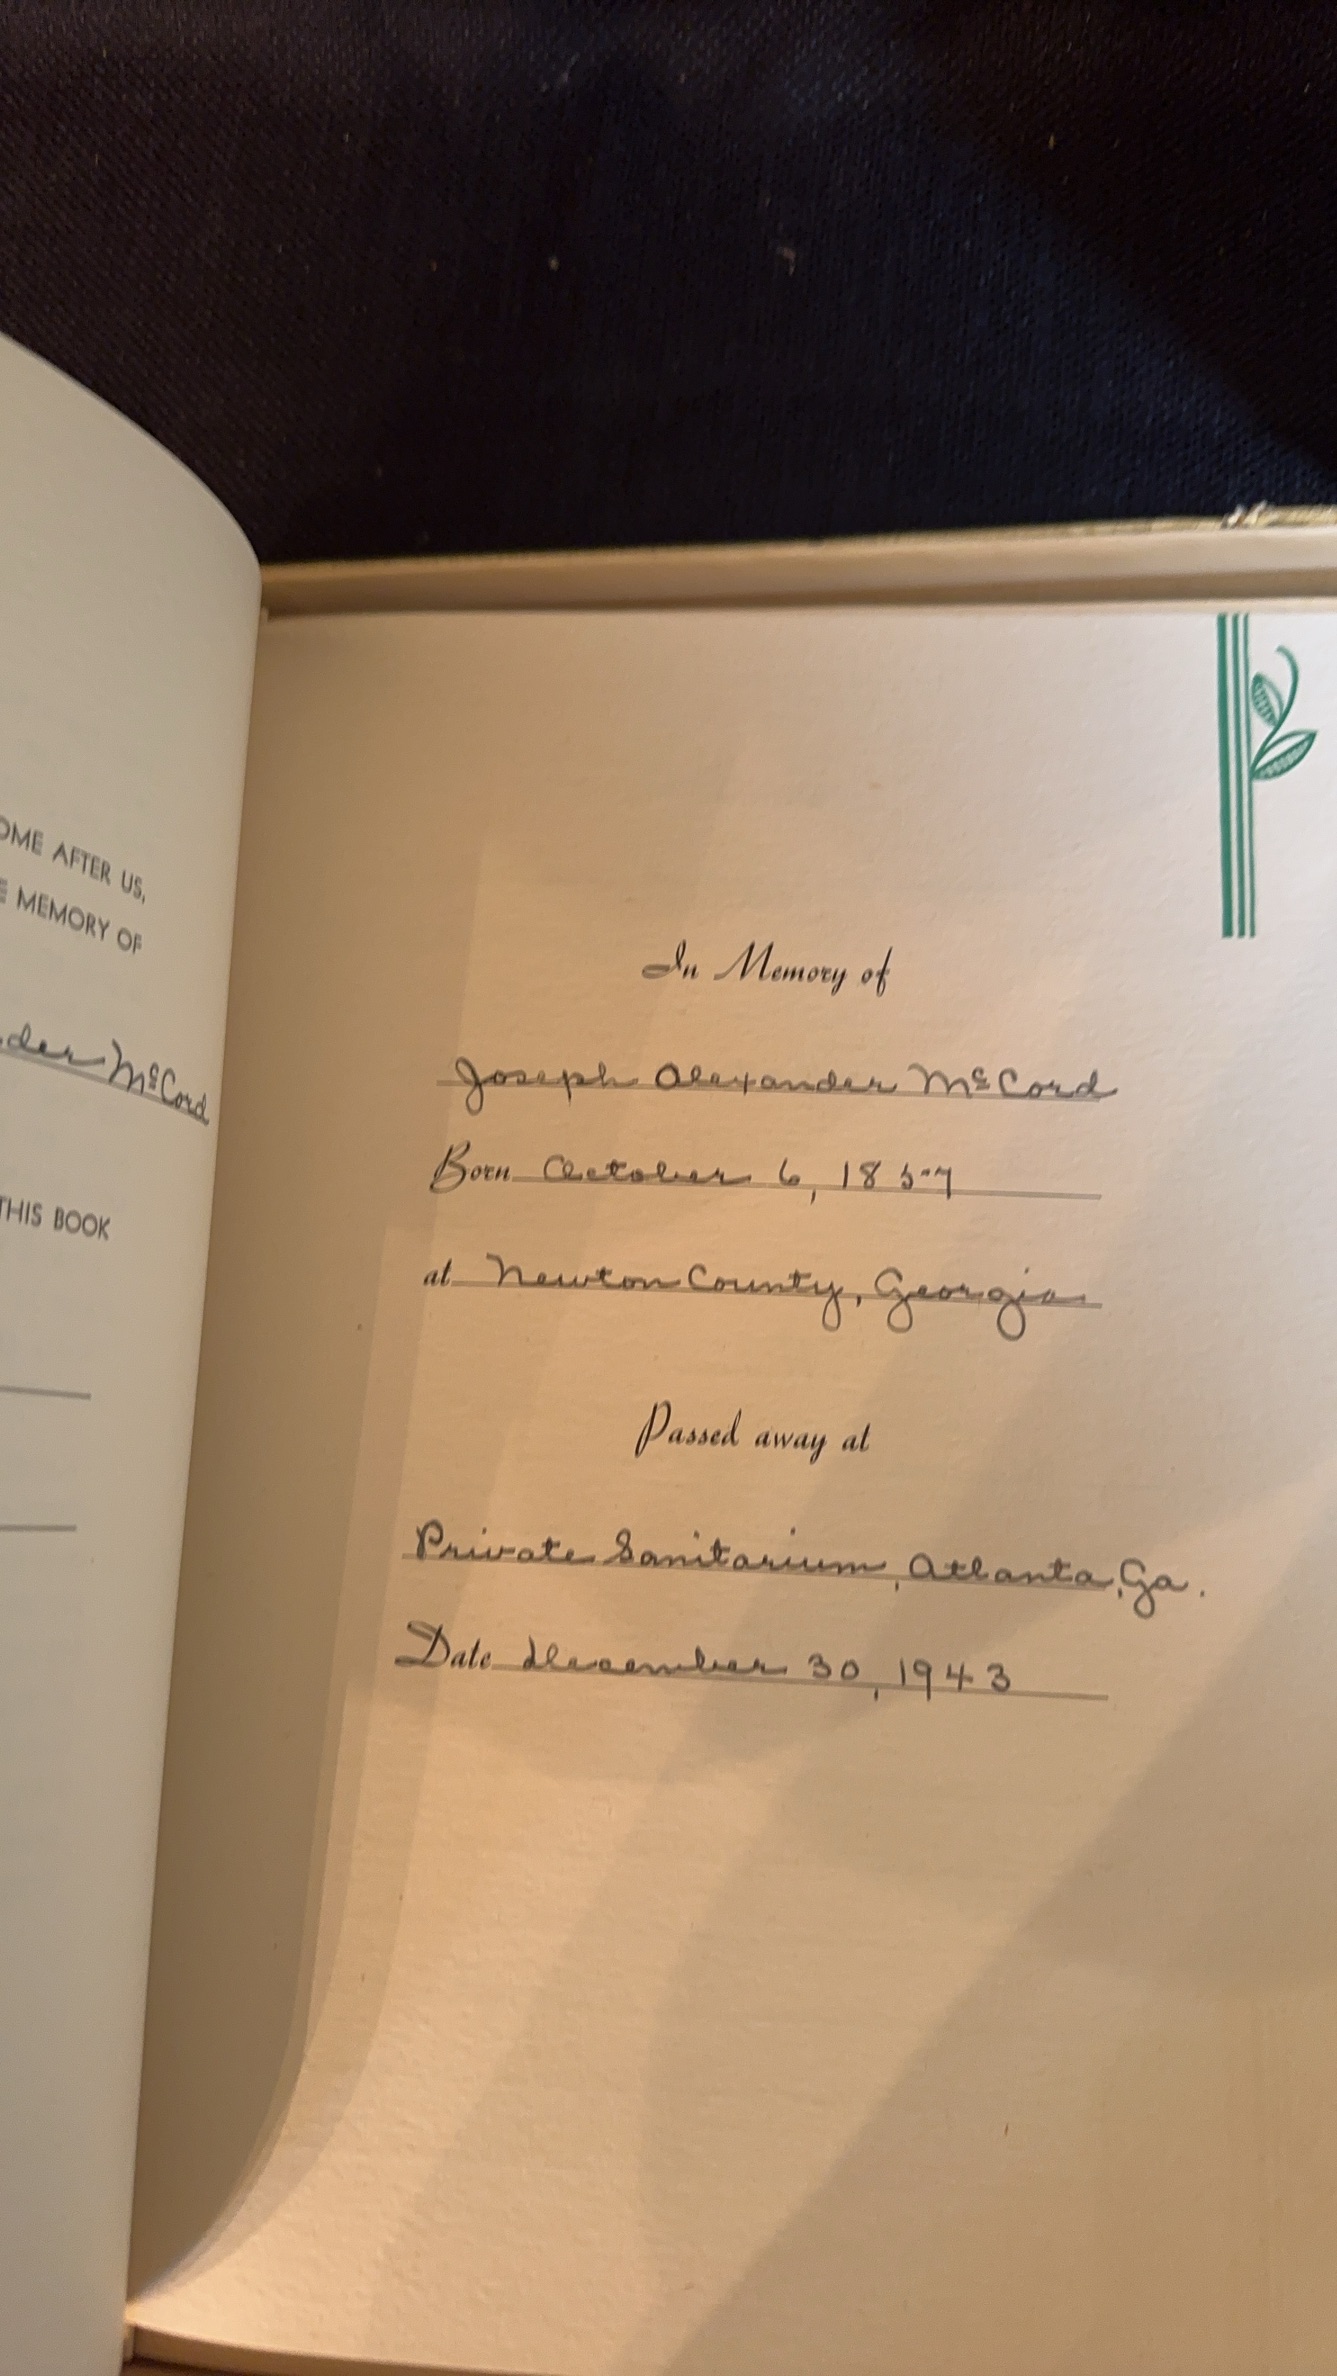 OME AFTER US,
MEMORY OF
der McCord
THIS BOOK
In Memory of
Joseph Alexander McCord
Born October 6, 1857
at Newton County, Georgia
Passed away at
Private Sanitarium, Atlanta, Ga.
Date December 30, 1943